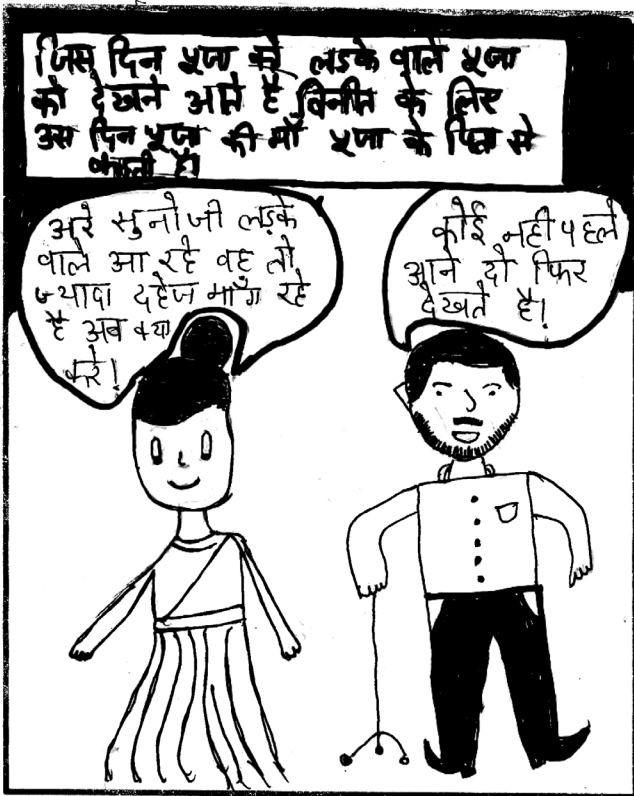 जिस दिन पूजा को लडके वाले पूजा
को देखने आते है विनीत के लिए
उस दिन पूजा की माँ पूजा के पिता से
कहती है।
अरे सुनोजी लड़के
वाले आ रहे वह तो
ज्यादा दहेज माँग रहे
है अब क्या
करे!
कोई नही पहले
आने दो फिर
देखते है!